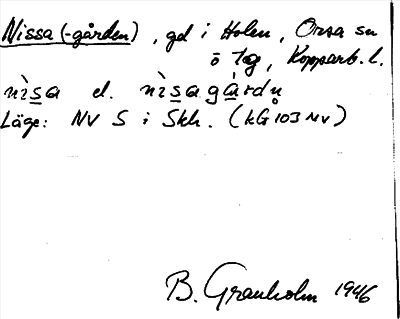 Nissa (-gården), gd i Holen, Orsa sn
ö tg, Kopparb. l.
nìsa el. nìsagårdn
Läge: NV S i Skh. (KG 103 NV)
B. Granholm 1946